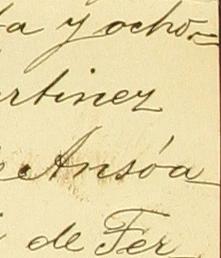 ta y ocho=
rtinez
e Ansóa
i de Fer